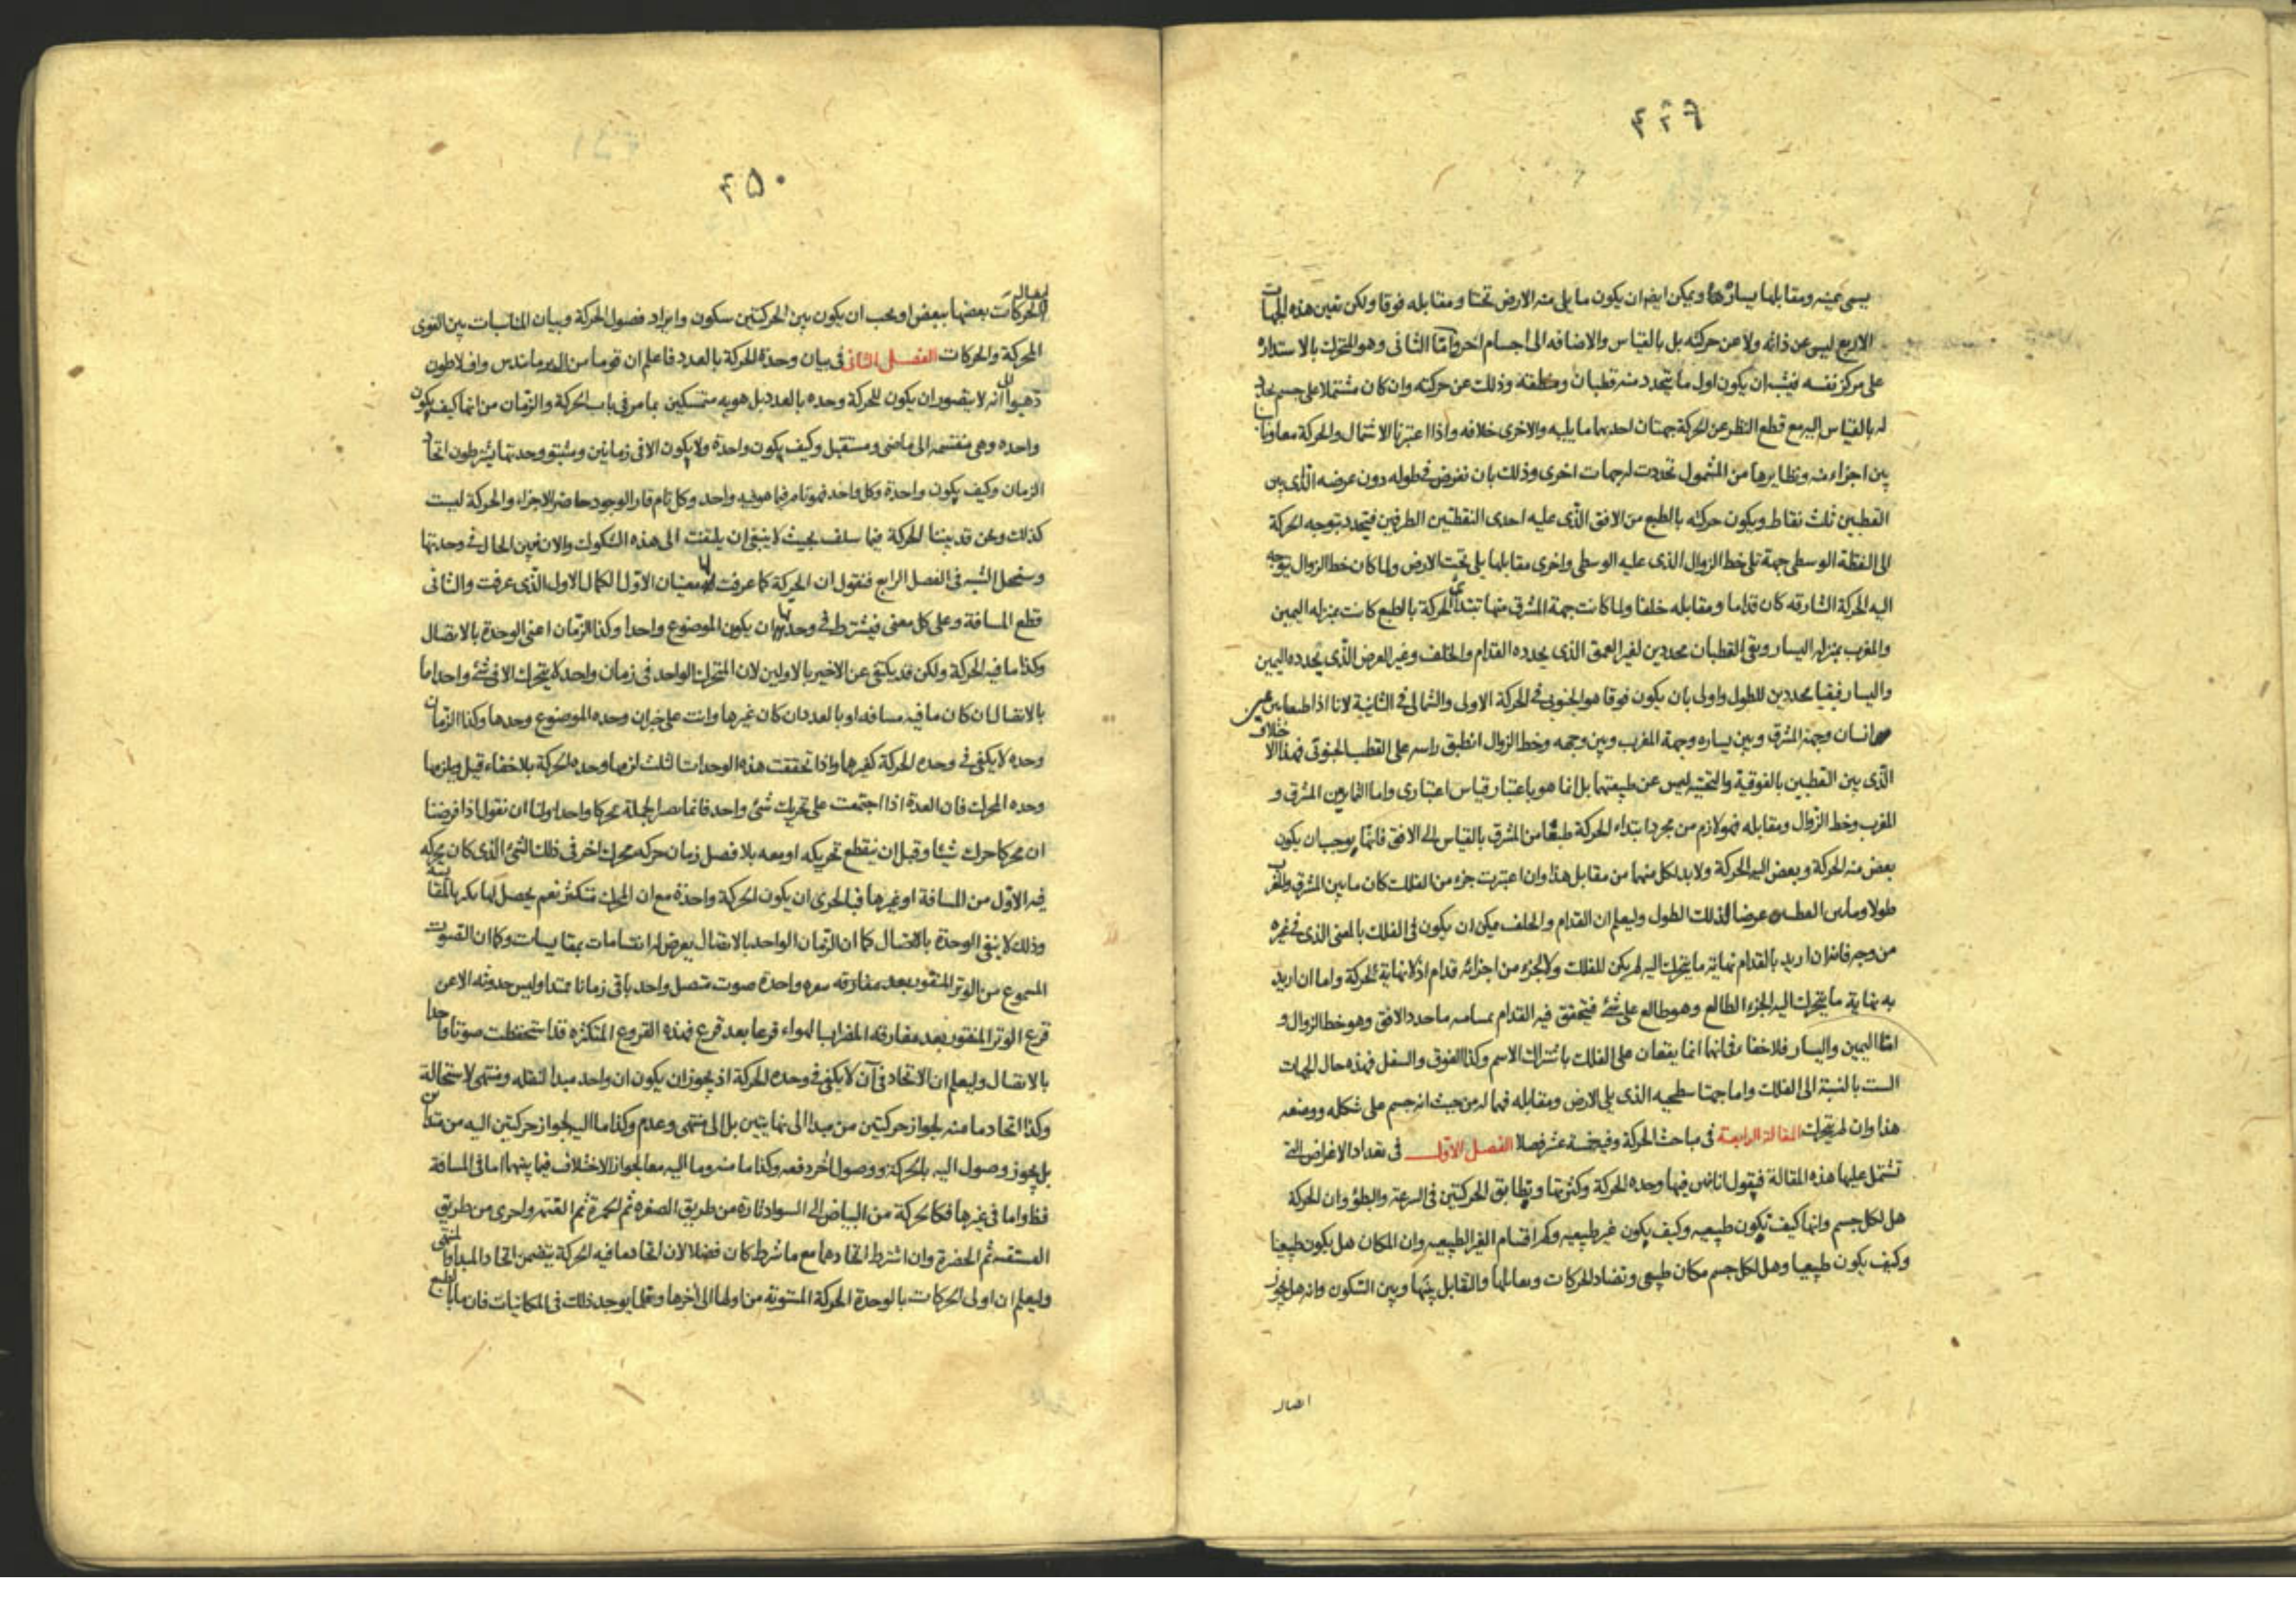 ٤٤٩
يسمى يمينه ومقابلها يسارها ويمكن ايضا ان يكون ما يلى منه الارض تحتا ومقابله فوقا ولكن تعين هذه الجهات
الاربع ليس عن ذاته ولا عن حركته بل بالقياس والاضافه الى اجسام اخر واما الثانى وهو المتحرك بالاستداره
على مركز نفسه فيشبه ان يكون اول ما يتحدد منه قطبان ومنطقة وذلك عن حركته وان كان مشتملا على جسم
له بالقياس اليه مع قطع النظر عن الحركة جهتان احديهما ما يليه والاخرى خلافه واذا اعتبرنا الاشتمال والحركة معا
بين اجزاء منه ونظايرها من المشمول تحددت له جهات اخرى وذلك بان نفرض فى طوله دون عرضه الذى بين
القطبين ثلث نقاط ويكون حركته بالطبع من الافق الذى عليه احدى النقطتين الطرفين فيتحدد بتوجه الحركة
الى النقطة الوسطى جهة تلى خط الزوال الذى عليه الوسطى واخرى مقابلها يلى تحت الارض ولما كان خط الزوال يتوجه
اليه الحركة الشارقه كان قداما ومقابله خلفا ولما كانت جهة المشرق منها تبتدئ الحركة بالطبع كانت بمنزله اليمين
والمغرب بمنزله اليسار وبقى القطبان محددين لغير العمق الذى يحدده القدام والخلف وغير العرض الذى يحدده اليمين
واليسار فبقيا محددين للطول واولى بان يكون فوقا هو الجنوبى فى الحركة الاولى والشمالى فى الثانية لانا اذا طبقنا بين يمين
انسان وجهة المشرق وبين يساره وجهة المغرب وبين وجهه وخط الزوال انطبق راسه على القطب الجنوبى فهذا الاختلاف
الذى بين القطبين بالفوقية والتحتيه ليس عن طبيعتهما بل انما هو باعتبار قياس اعتبارى واما التمايز بين المشرق و
المغرب وخط الزوال ومقابله فهو لازم من مجرد ابتداء الحركة طبعا من المشرق بالقياس الى الافق فانها يوجب ان يكون
بعض منه الحركة وبعض اليه الحركة ولا بد لكل منهما من مقابل هذا وان اعتبرت جزء من الفلك كان ما بين المشرق والمغرب
طولا وما بين القطبين عرضا لذلك الطول وليعلم ان القدام والخلف يمكن ان يكون فى الفلك بالمعنى الذى فى غيره
من وجه فانه ان اريد بالقدام نهاية ما يتحرك اليه لم يكن للفلك ولا لجزء من اجزائه قدام اذ لا نهاية لحركة واما ان اريد
به نهاية ما يتحرك اليه الجزء الطالع وهو طالع على شئ فيتحقق فيه القدام بمسامته ما حدد الافق وهو خط الزوال و
امثا اليمين واليسار فلا خفا فانهما انما يقعان على الفلك باشتراك الاسم وكذا الفوق والسفل فهذه حال الجهات
الست بالنسبة الى الفلك واما جهتا سطحيه الذى يلى الارض ومقابله فهما له من حيث انه جسم على شكله ووضعه
هذا وان لم يتحرك المقالة الرابعة فى مباحث الحركة وفيه خمسة عشر فصلا الفصل الاول فى تعداد الاغراض التى
تشتمل عليها هذه المقالة فيقول انا نبين فيها وحده الحركة وكثرتها وتطابق الحركتين فى السرعة والبطؤ وان الحركة
هل لكل جسم وانها كيف تكون طبيعيه وكيف يكون غير طبيعيه وكم اقسام الغير الطبيعيه وان المكان هل يكون طبيعيا
وكيف يكون طبيعيا وهل لكل جسم مكان طبيعى وتضاد الحركات وتقابلها والتقابل بينها وبين السكون وانه هل يجوز
اتصال
٤٥٠
اتصال
الحركات بعضها ببعض او يجب ان يكون بين الحركتين سكون وايراد فصول الحركة وبيان المناسبات بين القوى
المحركة والحركات الفصل الثانى فى بيان وحدة الحركة بالعدد فاعلم ان قوما من ال برمانيدس وافلاطون
ذهبوا الى انه لا يتصور ان يكون للحركة وحده بالعدد بل هويه متمسكين بما مر فى باب الحركة والزمان من انها كيف يكون
واحده وهى منقسمه الى ماضى ومستقبل وكيف يكون واحدة ولا يكون الا فى زمانين ومثبتو وحدتها يشترطون اتحاد
الزمان وكيف يكون واحدة وكل واحد فهو تام فيما هو فيه واحد وكل تام قار الوجود حاضر الاجزاء والحركة ليست
كذلك ونحن قد بينا الحركة فيما سلف بحيث لا ينبغى ان يلتفت الى هذه الشكوك والان نبين الحال فى وحدتها
وسنحل الشبه فى الفصل الرابع فنقول ان الحركة كما عرفت لها معنيان الاول الكمال الاول الذى عرفت والثانى
قطع المسافة وعلى كل معنى فيشترط فى وحدتها ان يكون الموضوع واحدا وكذا الزمان اعنى الوحدة بالاتصال
وكذا ما فيه الحركة ولكن قد يكتفى عن الاخير بالاولين لان المتحرك الواحد فى زمان واحد لا يتحرك الا فى شئ واحد اما
بالاتصال ان كان ما فيه مسافه او بالعدد ان كان غيرها وانت على خبر ان وحده الموضوع وحدها وكذا الزمان
وحده لا يكفى فى وحده الحركة كغيرها واذا تحققت هذه الوحدات الثلث لزمها وحده الحركة بلا خفاء قيل ويلزمها
وحده المحرك فان العدة اذا اجتمعت على تحريك شئ واحد فانما تصير الجملة محركا واحدا ولنا ان نقول اذا فرضنا
ان محركا حرك شيئا وقبل ان ينقطع تحريكه او معه بلا فصل زمان حركه محرك اخر فى ذلك الشئ الذى كان يحركه
فيه الاول من المسافة او غيرها فبالحرى ان يكون الحركة واحدة مع ان المحرك متكثر نعم يحصل لها تكثر بالمقايسة
وذلك لا ينفى الوحدة بالاتصال كما ان الزمان الواحد بالاتصال يعرض له انقسامات بمقايسات وكما ان الصوت
المسموع من الوتر المنقور بعد مفارقه نقره واحدة صوت متصل واحد باقى زمانا ممتدا وليس حدوثه الا عن
قرع الوتر المنقور بعد مفارقه المضراب الهواء قرعا بعد قرع فهذه القروع المتكثره قد استحفظت صوتا واحدا
بالاتصال وليعلم ان الاتحاد فى آن لا يكفى فى وحده الحركة اذ يجوز ان يكون ان واحد مبدا لنقله ومنتهى لاستحالة
وكذا اتحاد ما منه لجواز حركتين من مبدا الى نهايتين بل الى منتهى وعدم وكذا ما اليه لجواز حركتين اليه من مبدأين
بل يجوز وصول اليه بالحركة ووصول اخر دفعه وكذا ما منه وما اليه معا لجواز الاختلاف فيما بينهما اما فى المسافة
فظ واما فى غيرها فكالحركة من البياض الى السواد تارة من طريق الصفره ثم الحمرة ثم القتمه واخرى من طريق
الفستقيه ثم الخضرة وان اشترط اتحادهما مع ما شرط كان فضلا لان اتحاد ما فيه الحركة يتضمن اتحاد المبدا والمنتهى
وليعلم ان اولى الحركات بالوحدة الحركة المستويه من اولها الى آخرها وقلما يوجد ذلك فى المكانيات فان ما بالطبع